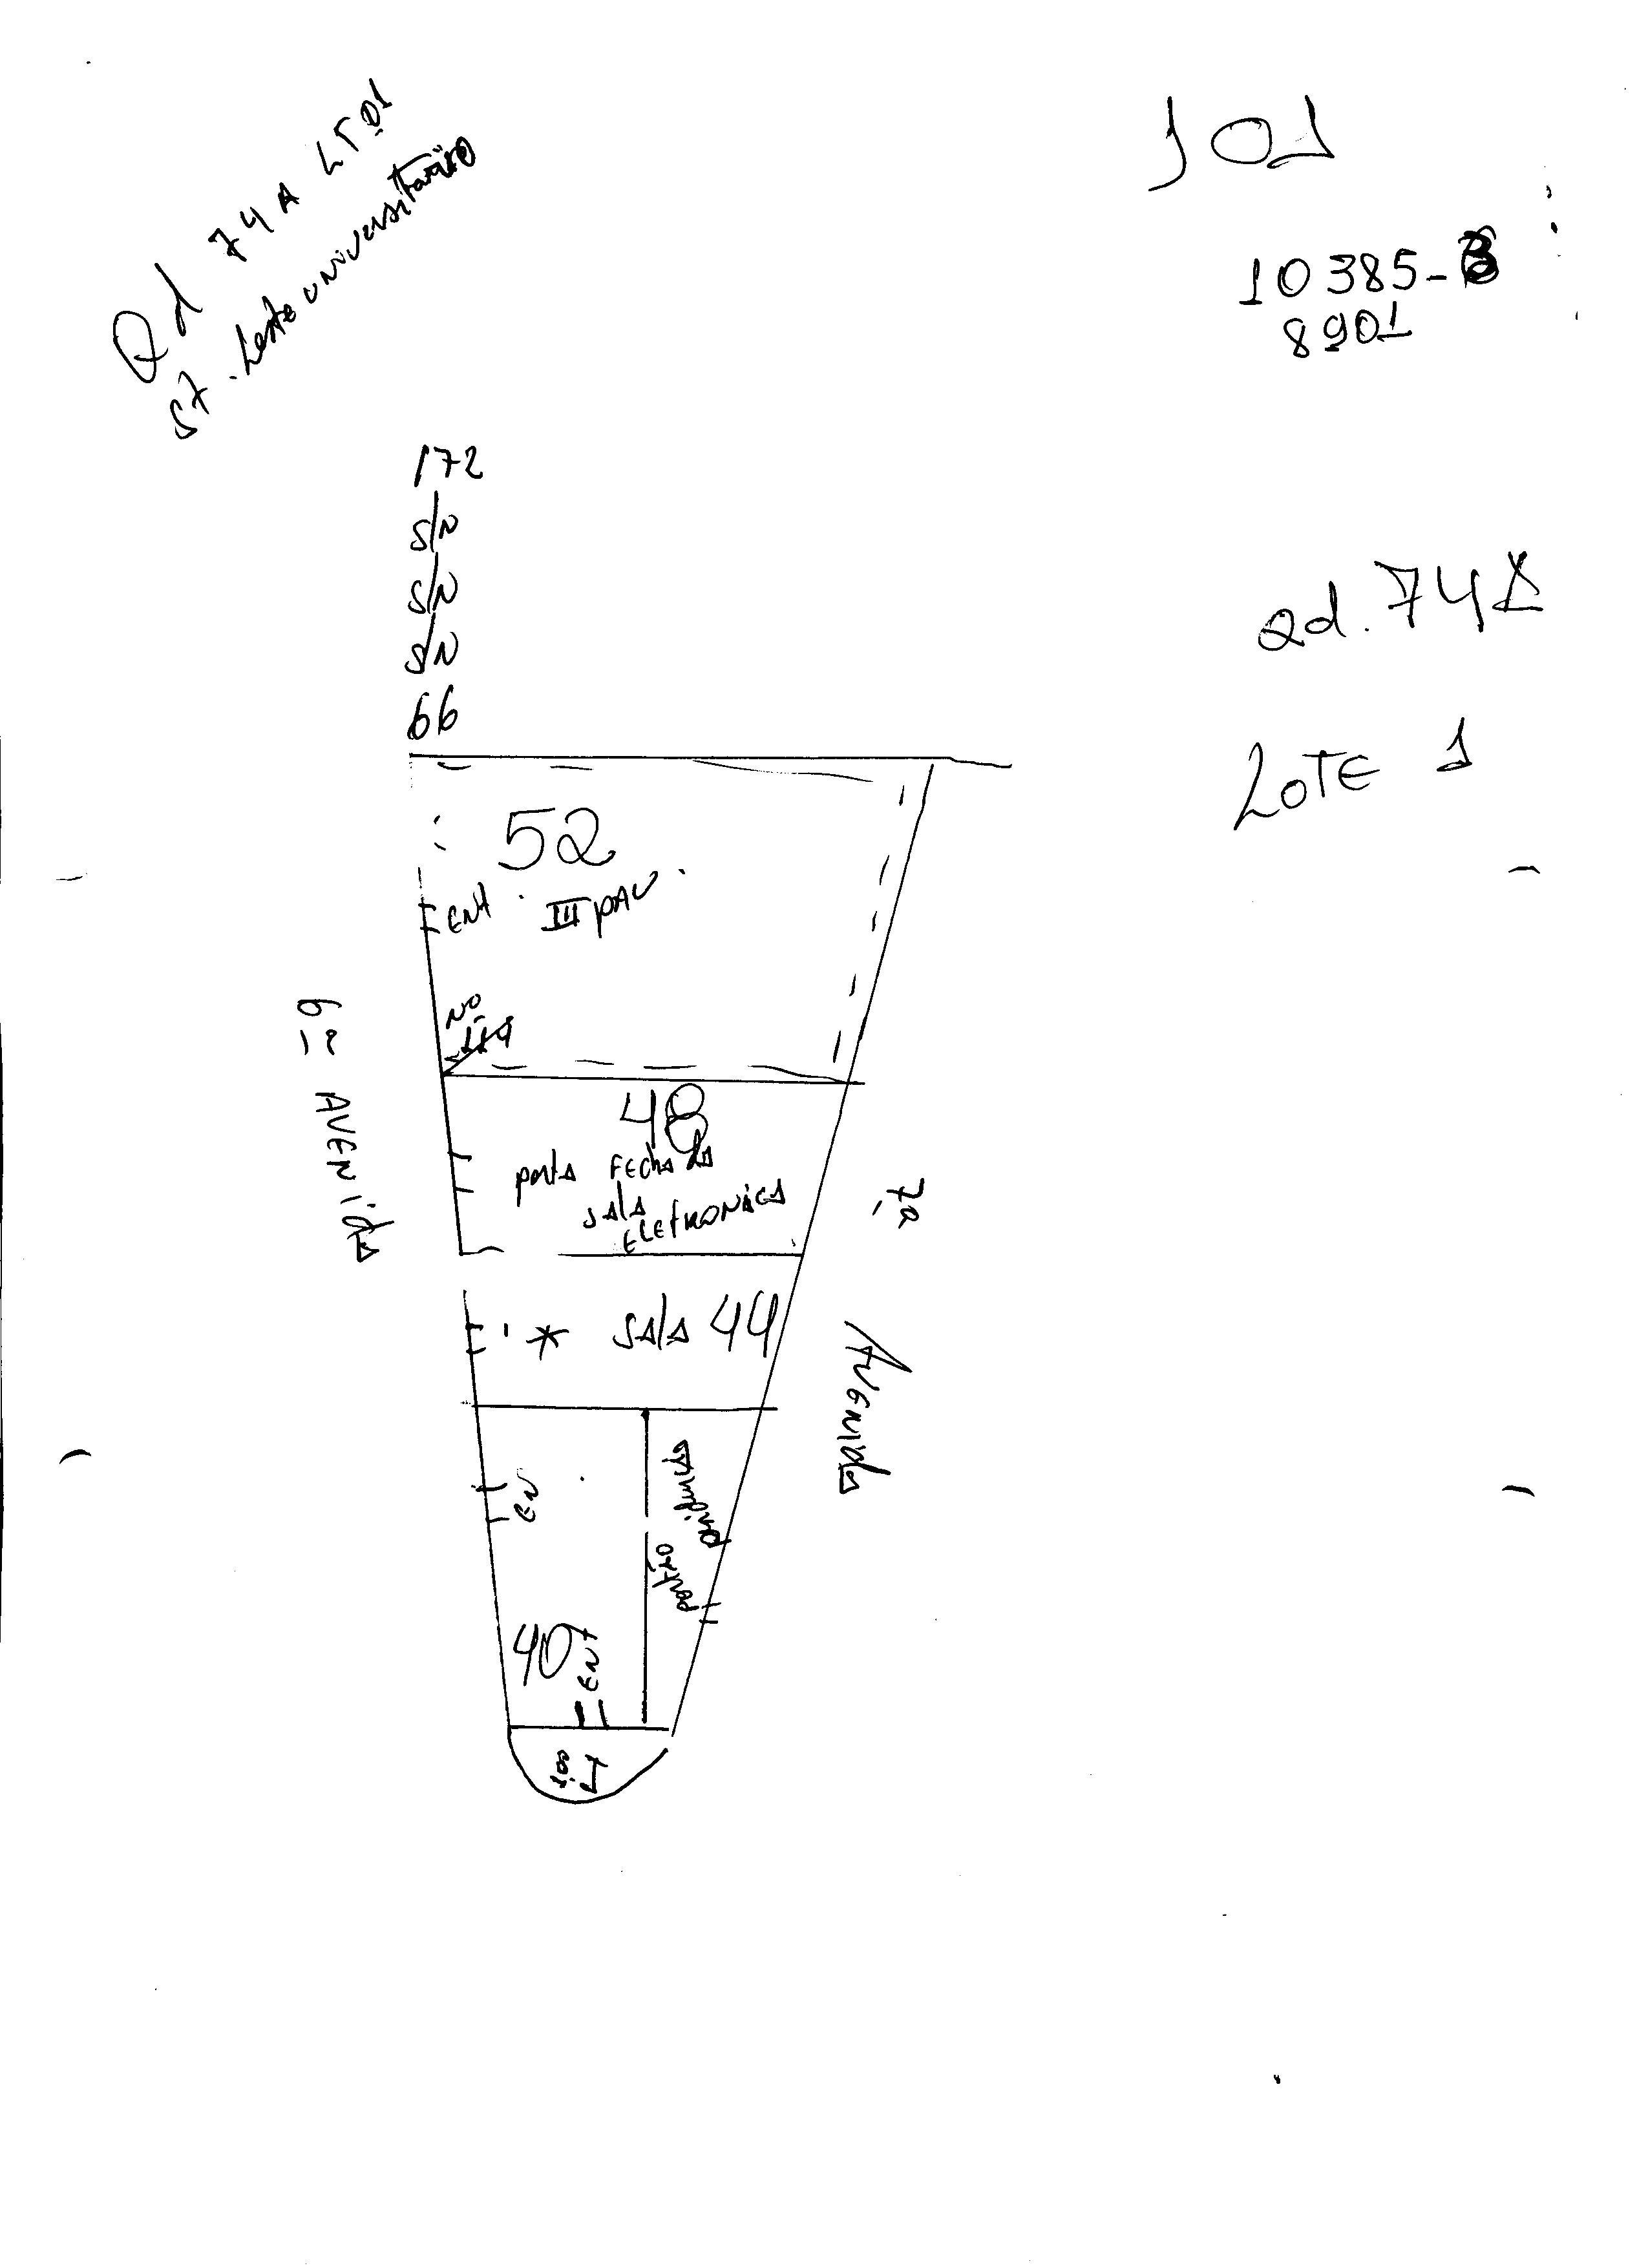 Qd 74A LT 01
ST. Leste universitário
101
10385-
8901
172
S/N
S/N
S/N
66
Qd. 74A
LOTE 1
52
ENT. III PAV.
Nº
6ª AVENIDA
48
porta FEchada
sala
ELETRONICA
7ª AVENIDA
* sala 44
EN
portão
40
ENT
LT